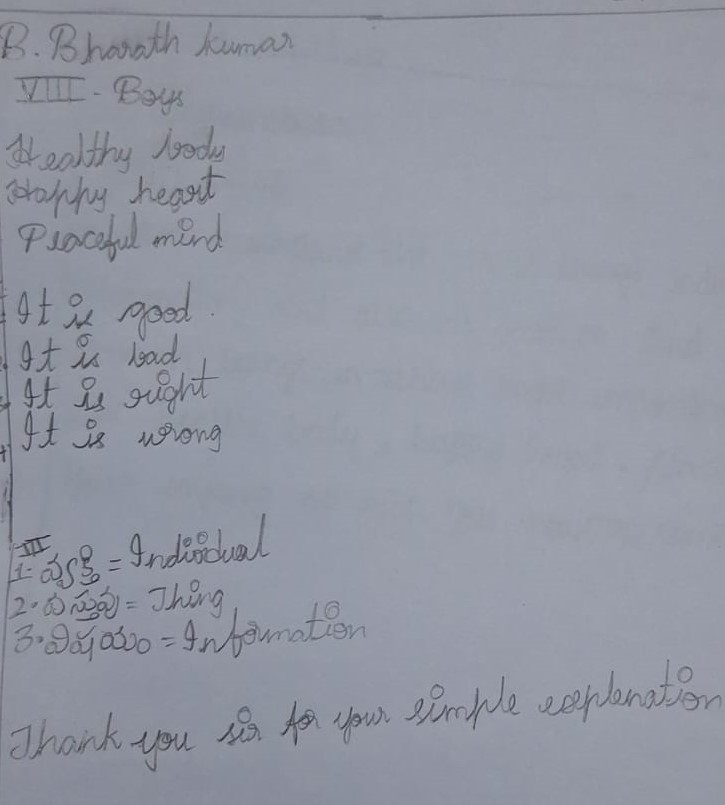 B. Bharath kumar
VIII - Boys
Healthy body
Happy heart
Peaceful mind
It is good.
It is bad
It is right
It is wrong
III
1. వ్యక్తి = Individual
2. వస్తువు = Thing
3. విషయం = Information
Thank you sir for your simple explenation